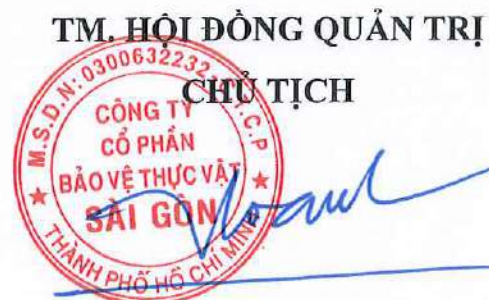 TM. HỘI ĐỒNG QUẢN TRỊ
CHỦ TỊCH
M.S.D.N: 0300632232
C.T.C.P
CÔNG TY
CỔ PHẦN
BẢO VỆ THỰC VẬT
SÀI GÒN
THÀNH PHỐ HỒ CHÍ MINH